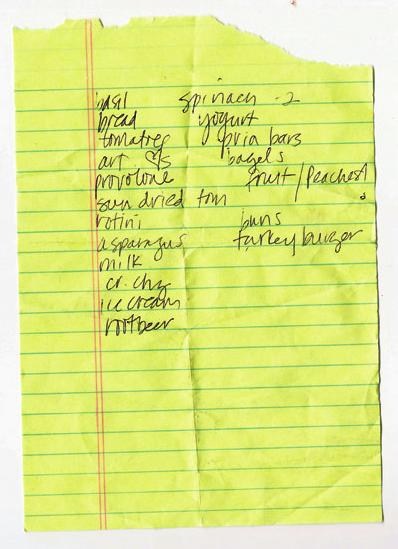 basil spinach -2
bread yogurt
tomatoes bria bars
art ♡s bagels
provolone fruit/Peaches
sun dried tom
rotini buns
asparagus turkey burger
milk
cr. chz
ice cream
rootbeer